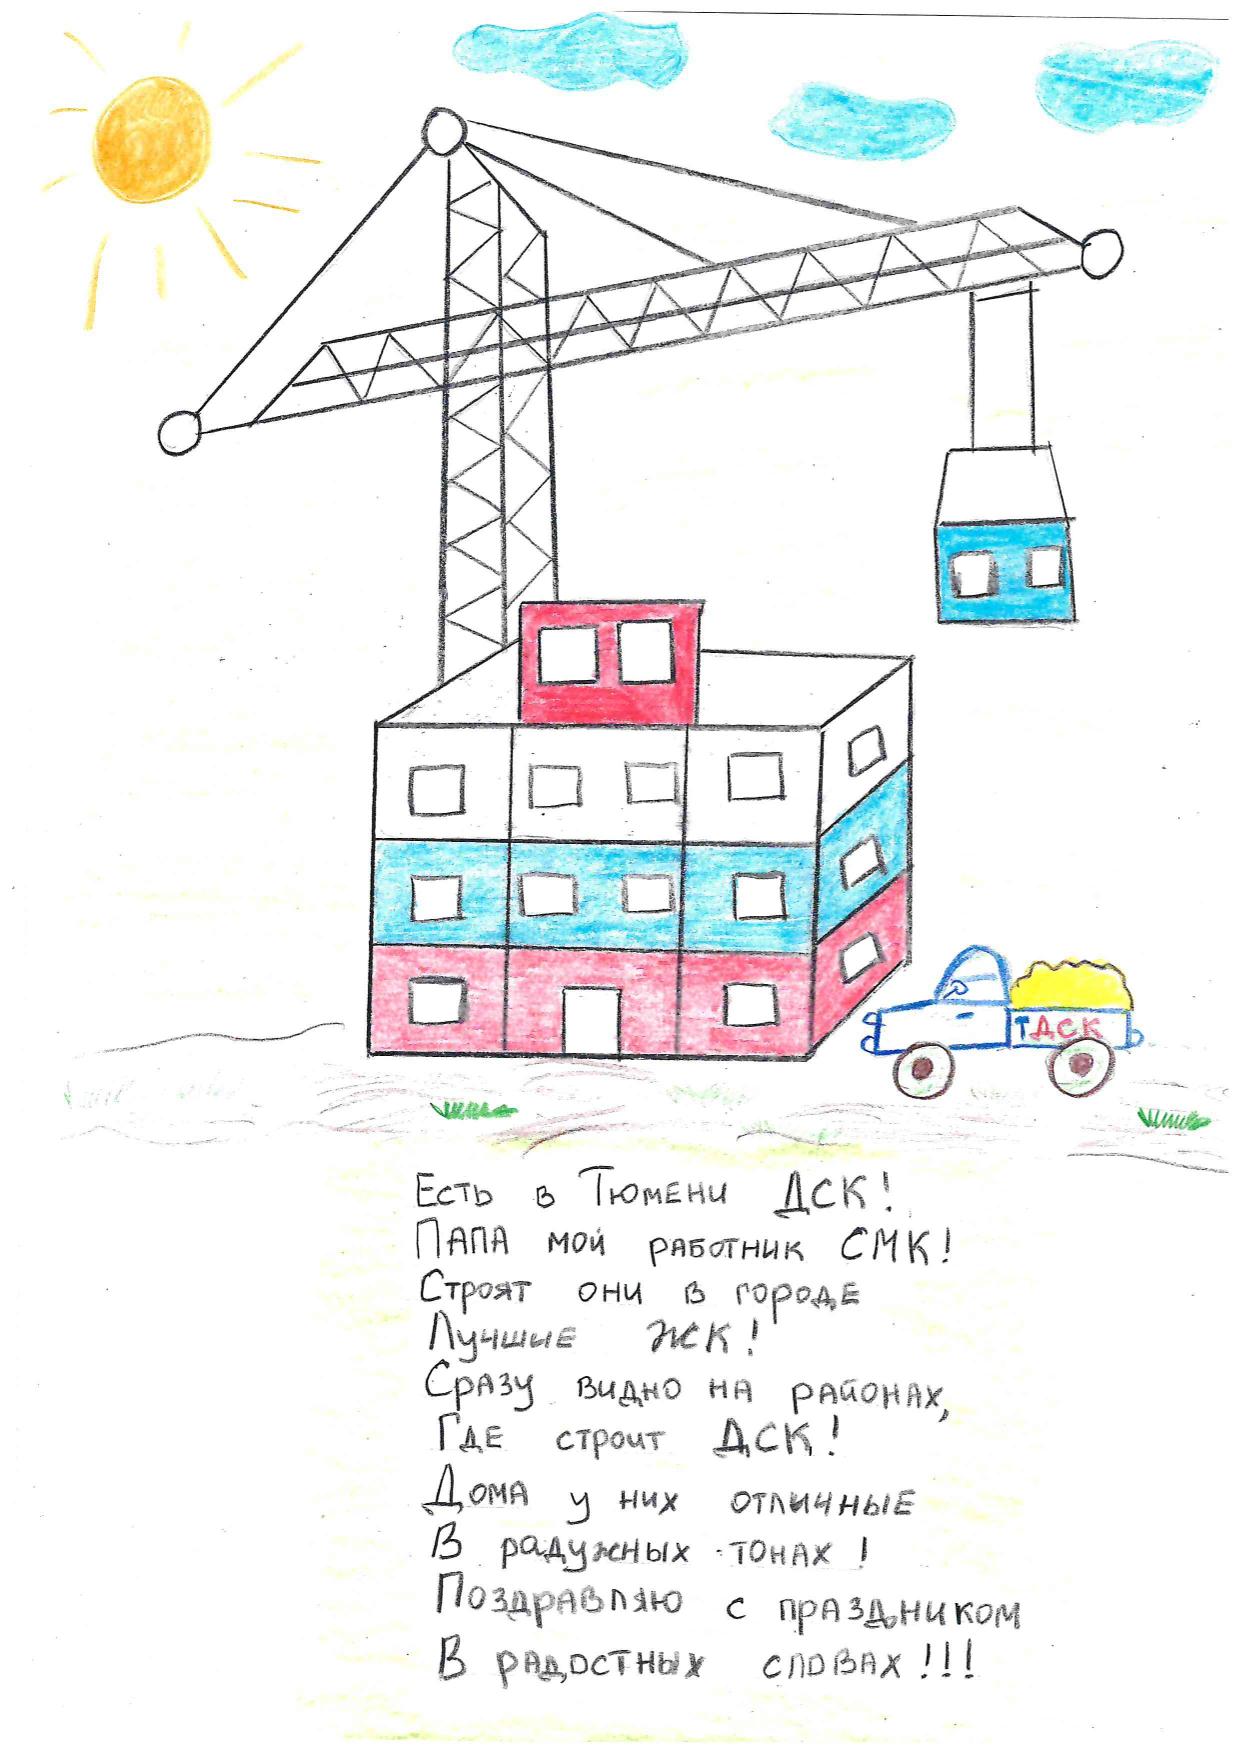 ТДСК
Есть в Тюмени ДСК!
Папа мой работник СМК!
Строят они в городе
Лучшие ЖК!
Сразу видно на районах,
Где строит ДСК!
Дома у них отличные
В радужных тонах!
Поздравляю с праздником
В радостных словах!!!